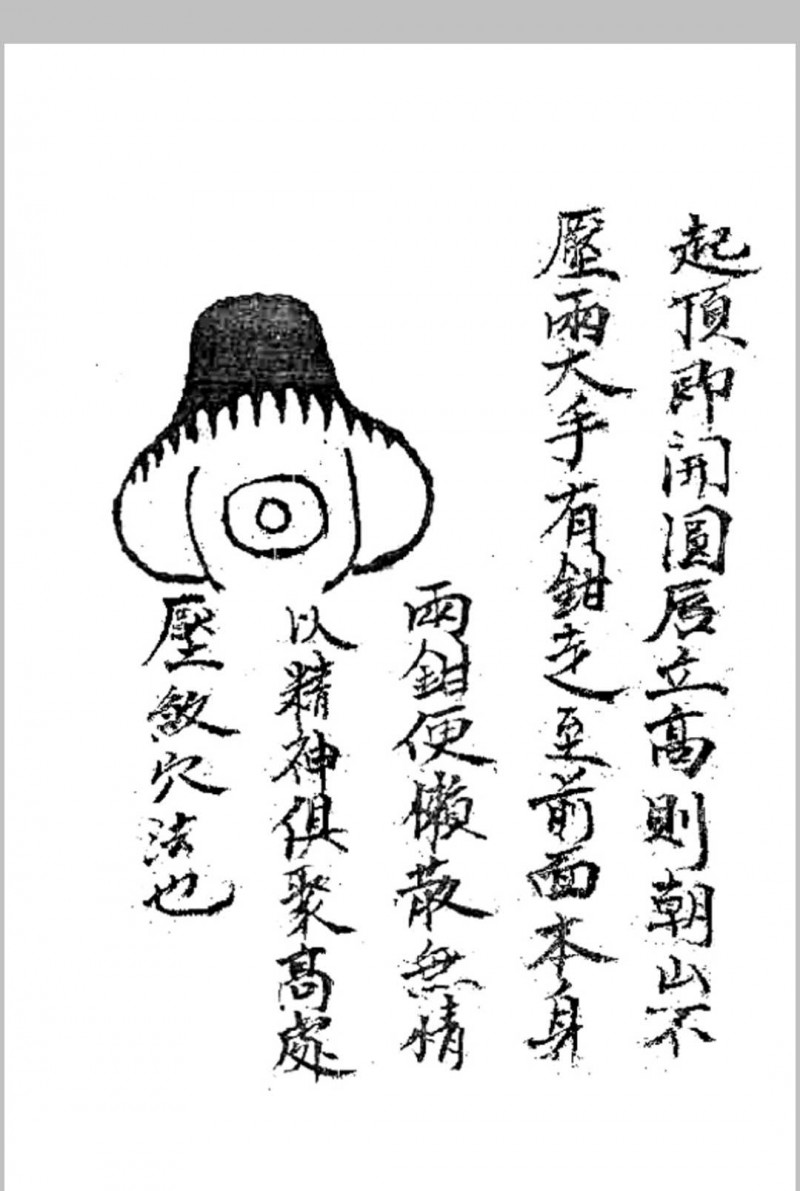 起頂即開圓唇立高則朝山不
壓兩大手有鉗走至前面本身
兩鉗便懶散無情
以精神俱聚高處
壓煞穴法也